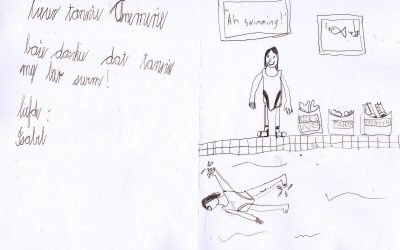 tannie Annemerie
baie dankie dat tannie
my leer swem!
liefde :
Isabel
Ah swimming!